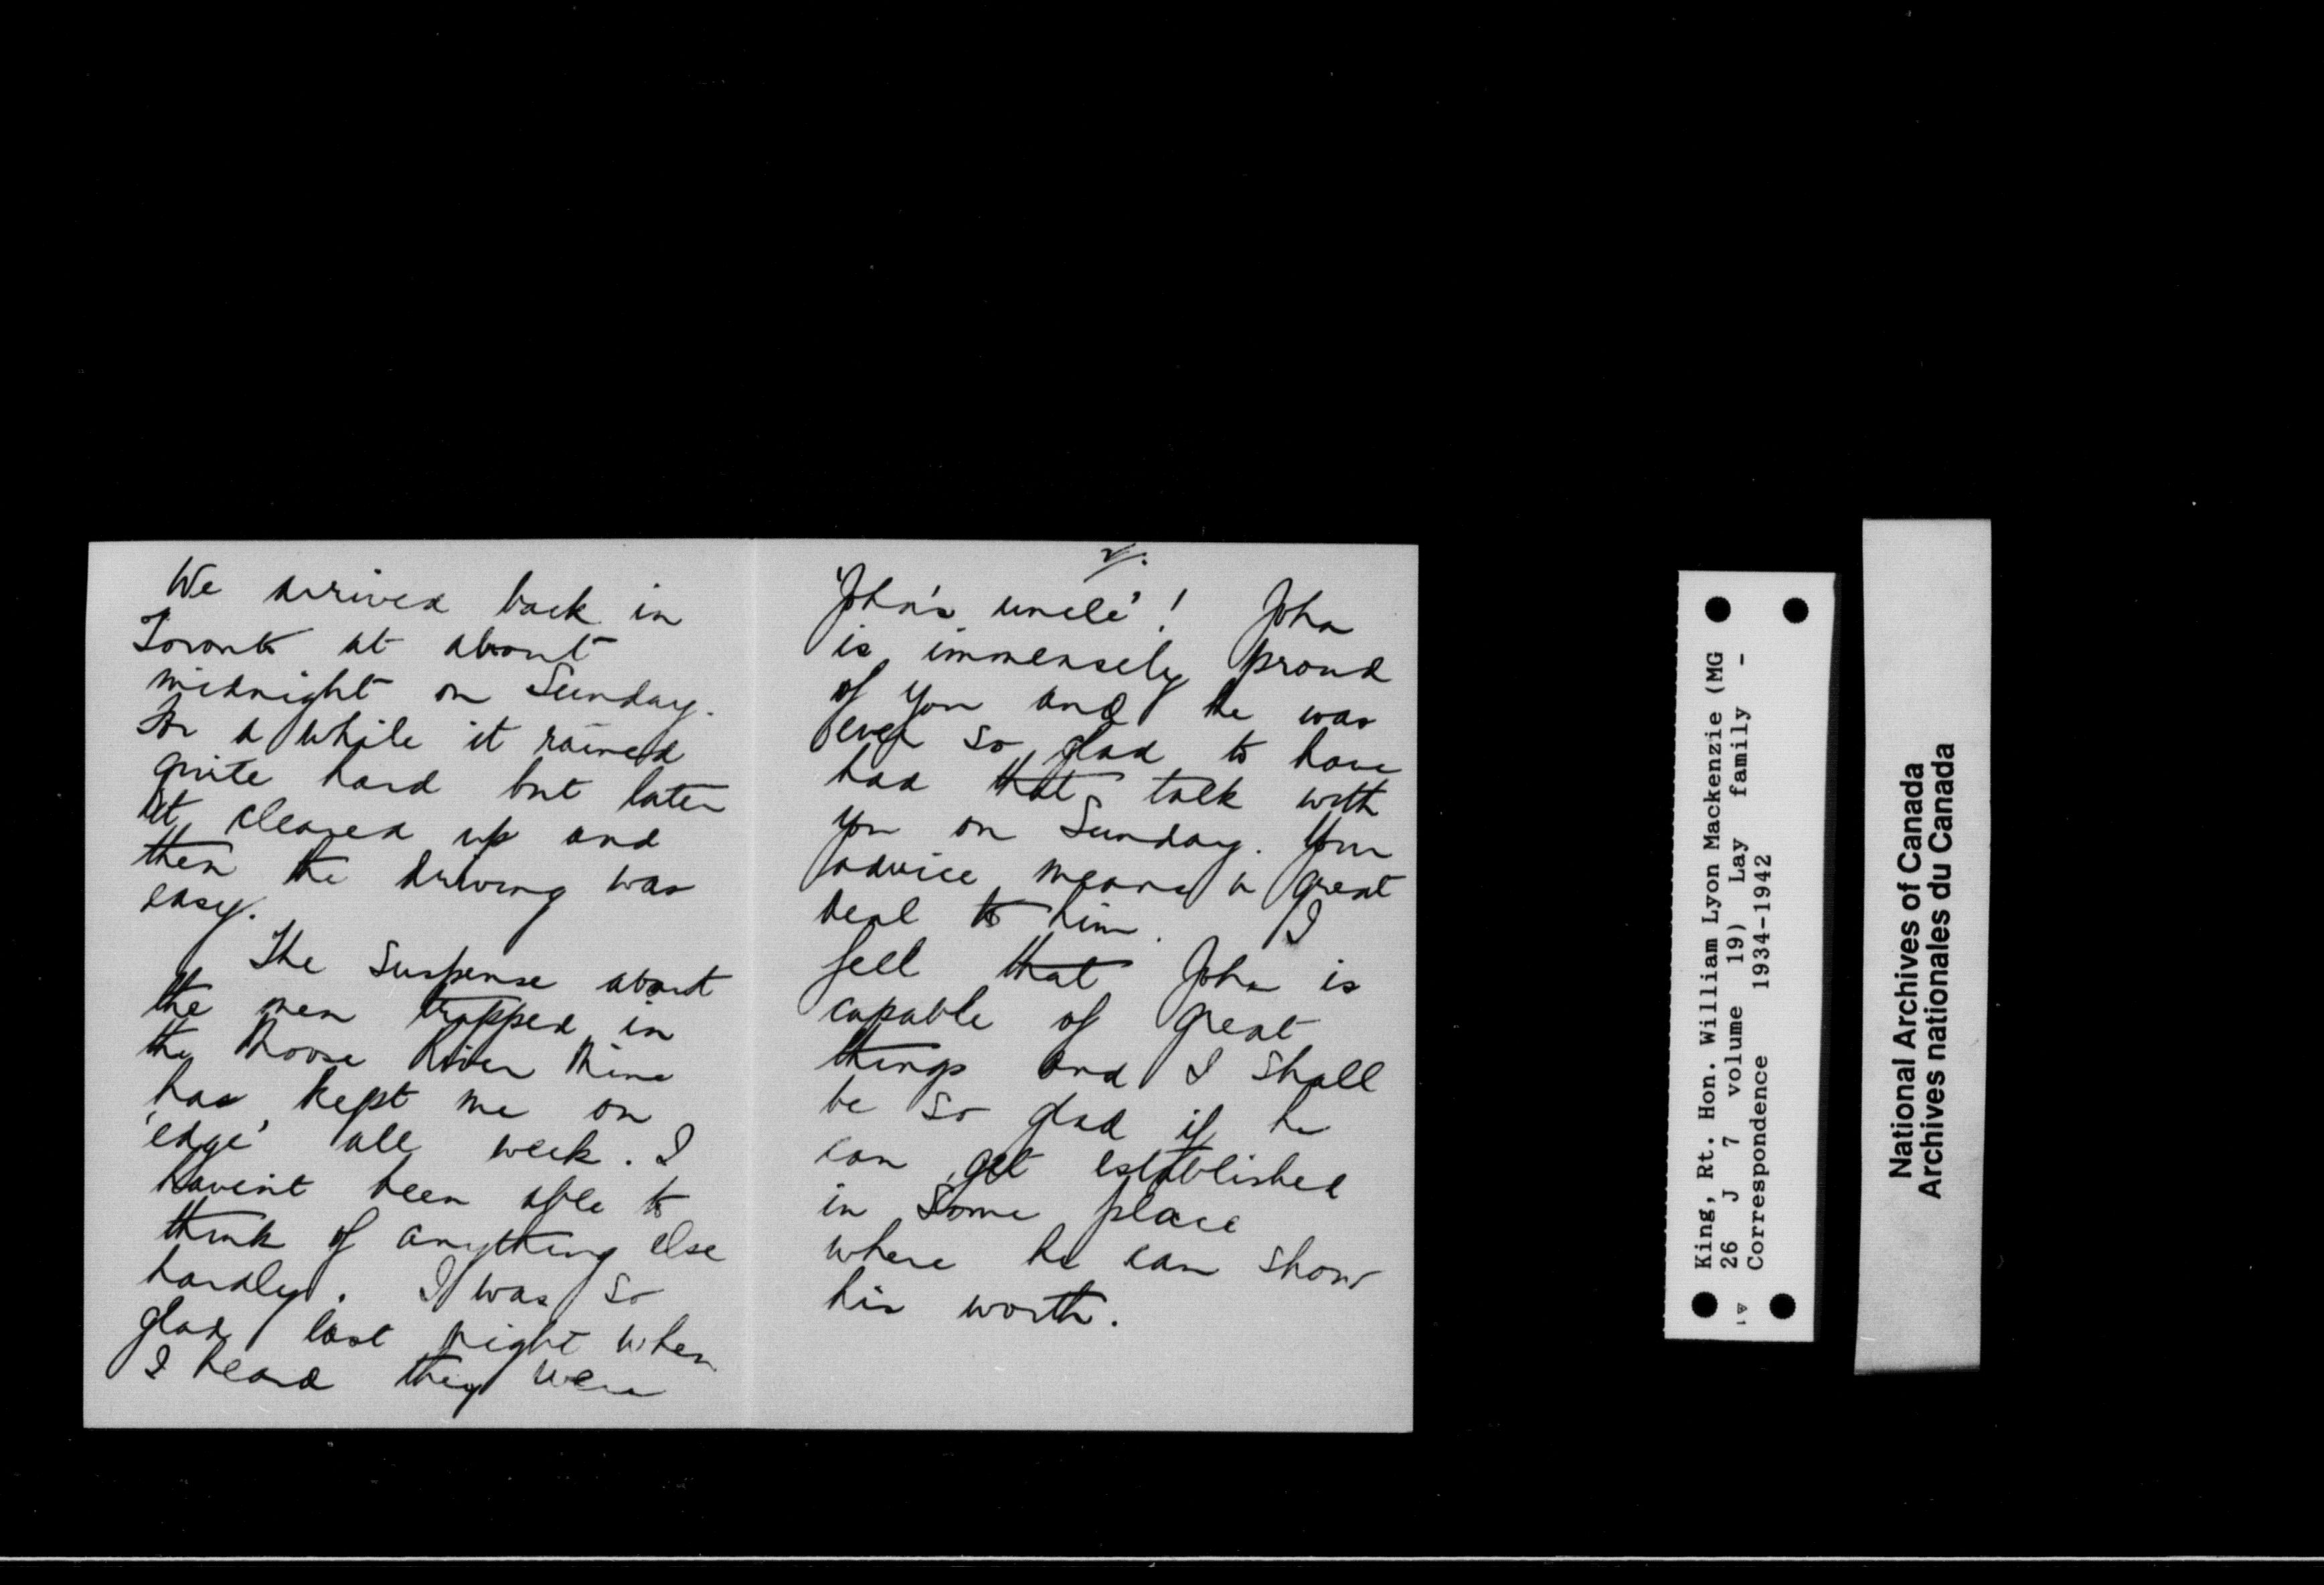 We arrived back in
Toronto at about
midnight on Sunday.
For a while it rained
quite hard but later
it cleared up and
then the driving was
easy.
The suspense about
the men trapped in
the Moose River Mine
has kept me on
'edge' all week. I
haven't been able to
think of anything else
hardly. I was so
glad last night when
I heard they were
2/.
'John's uncle'! John
is immensely proud
of you and he was
ever so glad to have
had that talk with
you on Sunday. Your
advice means a great
deal to him. I
feel that John is
capable of great
things and I shall
be so glad if he
can get established
in some place
where he can show
his worth.
King, Rt. Hon. William Lyon Mackenzie (MG
26 J 7 volume 19) Lay family -
Correspondence 1934-1942
National Archives of Canada
Archives nationales du Canada